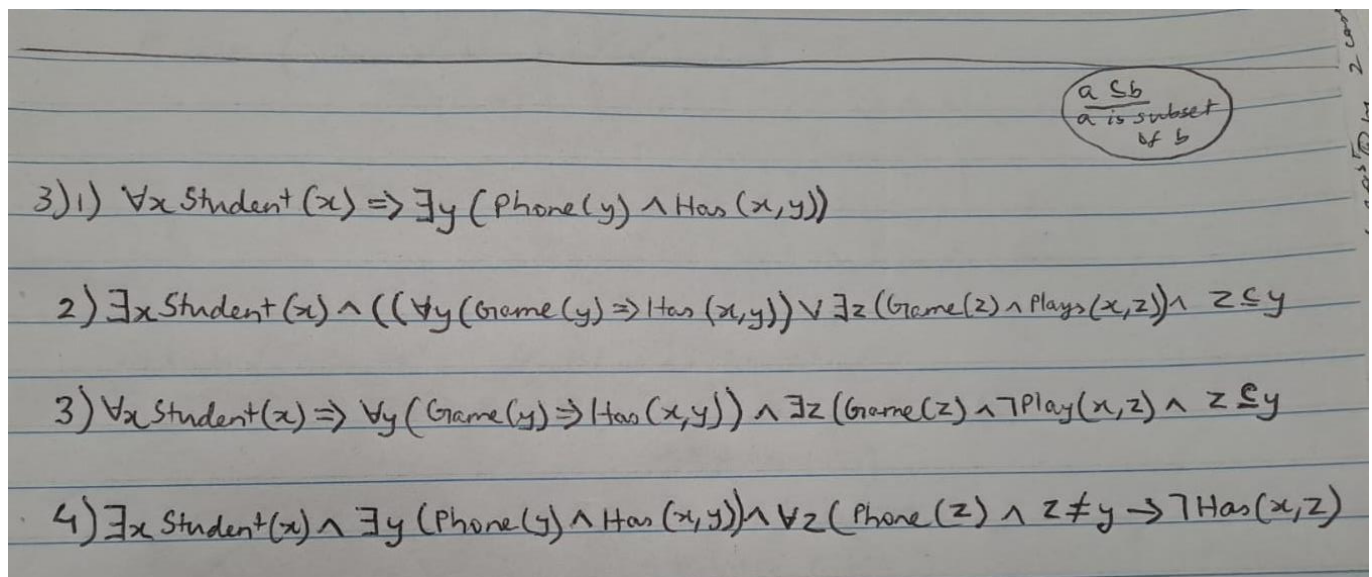 a ⊆ b
a is subset
of b
3) 1) ∀x Student(x) => ∃y (Phone(y) ∧ Has(x,y))
2) ∃x Student(x) ∧ ((∀y (Game(y) => Has(x,y)) ∨ ∃z (Game(z) ∧ Plays(x,z)) ∧ z ⊆ y
3) ∀x Student(x) => ∀y (Game(y) => Has(x,y)) ∧ ∃z (Game(z) ∧ ¬Play(x,z) ∧ z ⊆ y
4) ∃x Student(x) ∧ ∃y (Phone(y) ∧ Has(x,y)) ∧ ∀z (Phone(z) ∧ z ≠ y → ¬Has(x,z)